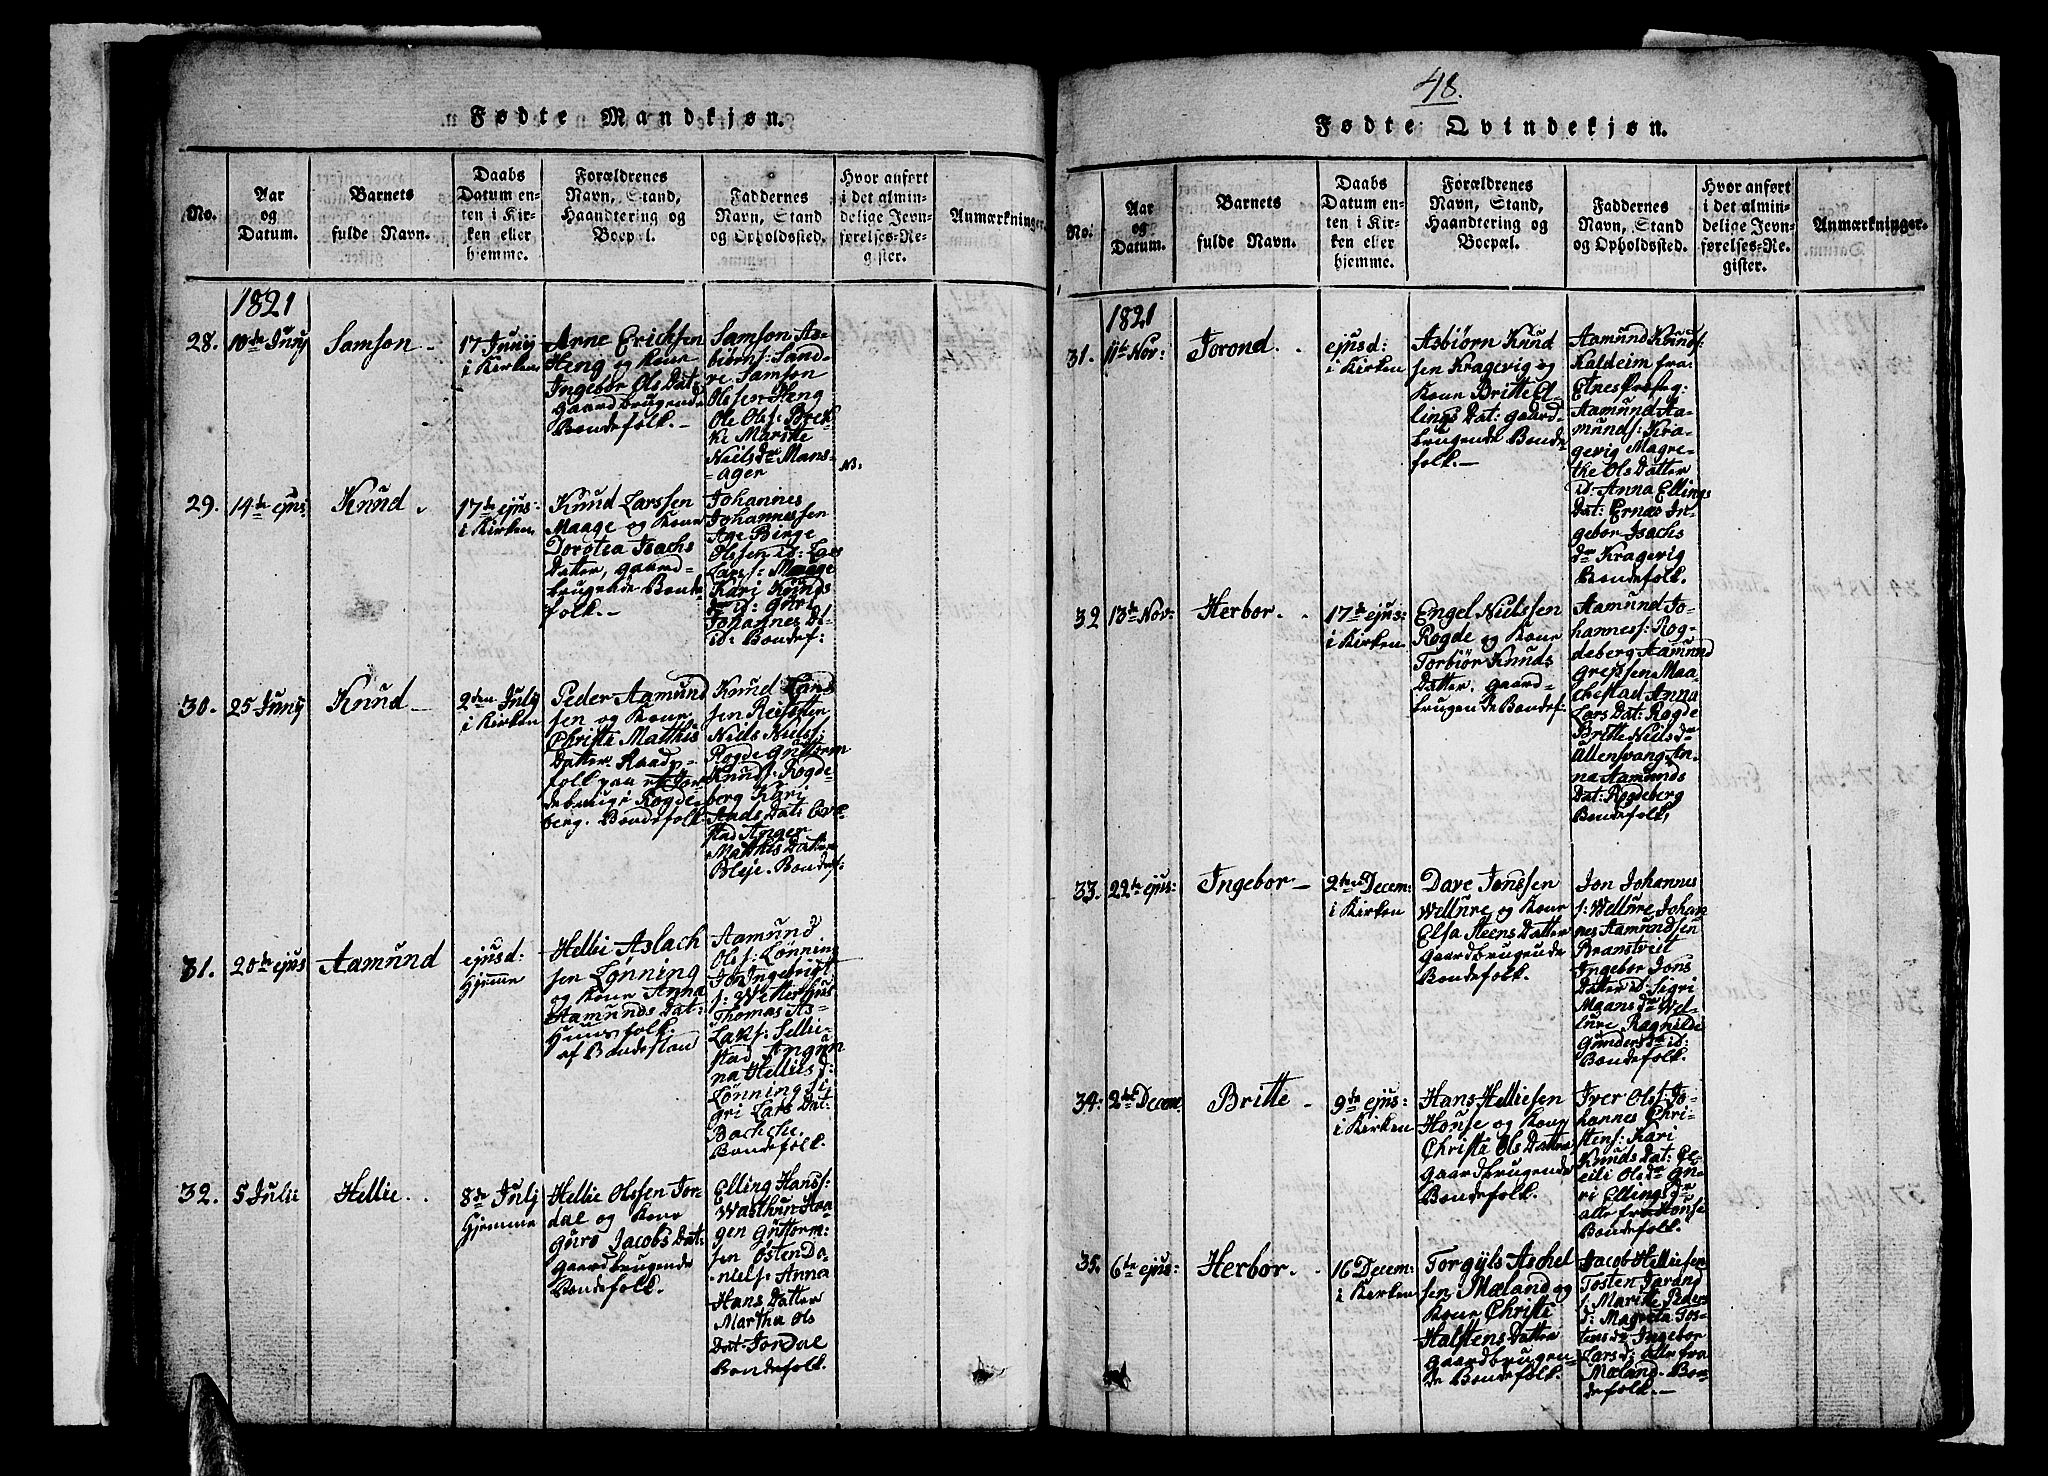 48.
Fødte Mandkjøn.
No.
Aar
og
Datum.
Barnets
fulde Navn.
Daabs
Datum en-
ten i Kir-
ken eller
hjemme.
Forældrenes
Navn, Stand,
Haandtering og
Boepæl.
Faddernes
Navn, Stand
og Opholdssted.
Hvor anført
i det almin-
delige Jevn-
førelses-Re-
gister.
Anmærkninger.
1821
28.
10de Junij
Samson
17 Junij
i Kirken
Arne Ericksen
Heng og Kone
Ingebor Ols Dat:
gaardbrugende
Bondefolk.
Samson As-
biørns: Sand-
re Samson
Olssen Heng
Ole Ols: Brek-
ke Maritte
Neils dr Mans-
ager
N:
29.
14de ejus:
Knud
17de ejus:
i Kirken
Knud Larssen
Maage og Kone
Dorotea Isachs
Datter, gaard-
brugende Bonde-
folk.
Johannes
Johannessen
Age Birge
Olssen id: Lars
Lars s: Maage
Kari Knuds
dr id: Guri
Johannes D:
id: Bondef:
30.
25 Junij
Knud
2den Julij
i Kirken
Peder Aamund
sen og Kone
Christi Matthis
Datter Raads-
folk paa
Rogde
berg. Bondefolk.
Knud
sen
Niels Niels s:
Rogde Guttorm
Knuds: Rogde-
berg Kari
Dat:
Anger
Matthis Datter
Bleje. Bondef:
31.
20de ejus
Aamund
ejusd:
Hjemme
Hellie Aslach
sen Lønning
og Kone Anna
Aamunds Dat:
Huusfolk
af Bondestand
Aamund
Ols: Lønning
Jon Ingebrigt
s: Wetterhus
Thomas As-
laks: Sellie-
stad
na Hellies d:
Lønning Si-
gri Lars Dat:
Bachche.
Bondefolk.
32.
5 Julii
Hellie
8de Julij
Hjemme
Hellie Olssen Jor-
dal og Kone
Guro Jacobs Dat:
Gaardbrugende
Bondefolk.
Elling Hans s:
Wasthun Haa-
gen Guttorm-
sen Osten Da-
niels: Anna
Hans Datter
Martha Ols
Dat: Jordal
Bondefolk.
Fødte Qvindekjøn.
No.
Aar
og
Datum.
Barnets
fulde Navn.
Daabs
Datum en-
ten i Kir-
ken eller
hjemme.
Forældrenes
Navn, Stand,
Haandtering og
Boepæl.
Faddernes
Navn, Stand
og Opholdsted.
Hvor anført
i det almin-
delige Jevn-
førelses-Re-
gister.
Anmærkninger.
1821
31.
11te Nov:
Torond
ejusd:
i Kirken
Asbiørn Knud
sen Kragevig og
Kone Britte El-
lings Dat: gaard-
brugende Bonde
folk.
Aamund Knuds:
Kaldeim fra
Etnes Presteg:
Aamund Aa-
munds: Kra-
gevig Magre-
the Ols Datter
id: Anna Ellings
Dat: Ernæs In-
gebor Isachs
dr Kragevig
Bondefolk.
32
13de Nov:
Herbor
17de ejus:
i Kirken
Engel Nielssen
Rogde og Kone
Torbiør Knuds
Datter. gaard-
brugende Bondef:
Aamund Jo-
hanness: Rog-
deberg Aamund
Gregssen Maa-
chestad Anna
Lars Dat: Rogde
Britte Neils dr
Ullensvang An-
na Aamunds
Dat: Rogdeberg
Bondefolk,
33.
22de ejus:
Ingebor
2den Decem:
i Kirken
Dave Jonssen
Wellure og Kone
Elsa Steens Datter
Gaardbrugende
Bondefolk.
Jon Johannes
s: Wellure Johan
nes Aamundsen
Bramtveit
Ingebor Jons
Datter id: Sigri
Maans dr Wel-
lure Ragnilde
Gunders dr id:
Bondefolk.
34.
2det Decem.
Britte
9de ejus:
i Kirken
Hans Helliesen
House og Kone
Christi Ols Datter
Gaardbrugende
Bondefolk.
Iver Ols s: Jo-
hannes Chri-
stens: Kari
Knuds Dat: Ce-
cili Ols dr Gu-
ri Ellings dr
alle fra House
Bondefolk.
35.
6te ejus:
Herbor
16 Decem:
i Kirken
Torgyls Aschel
sen Mæland og
Kone Christi
Halstens Datter
Gaardbrugen-
de Bondefolk.
Jacob Helliesen
Tosten Jarand
s: Maritte Peders
d: Magreta Tos-
tens dr Ingebor
Lars d: alle fra
Mæland. Bon-
defolk.